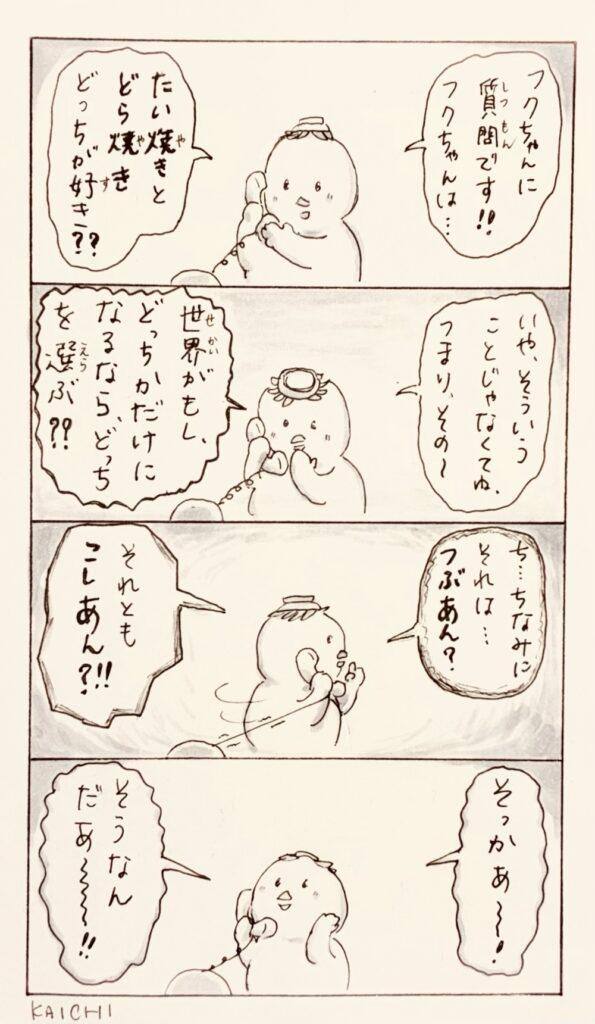 フクちゃんに
質問です!!
フクちゃんは…
たい焼きと
どら焼き
どっちが好き??
いや、そういう
ことじゃなくてね、
つまり、その〜
世界がもし、
どっちかだけに
なるなら、どっち
を選ぶ??
ち…ちなみに
それは…
つぶあん?
それとも
こしあん?!!
そっかぁ〜〜!
そうなん
だぁ〜〜〜!!
KAICHI